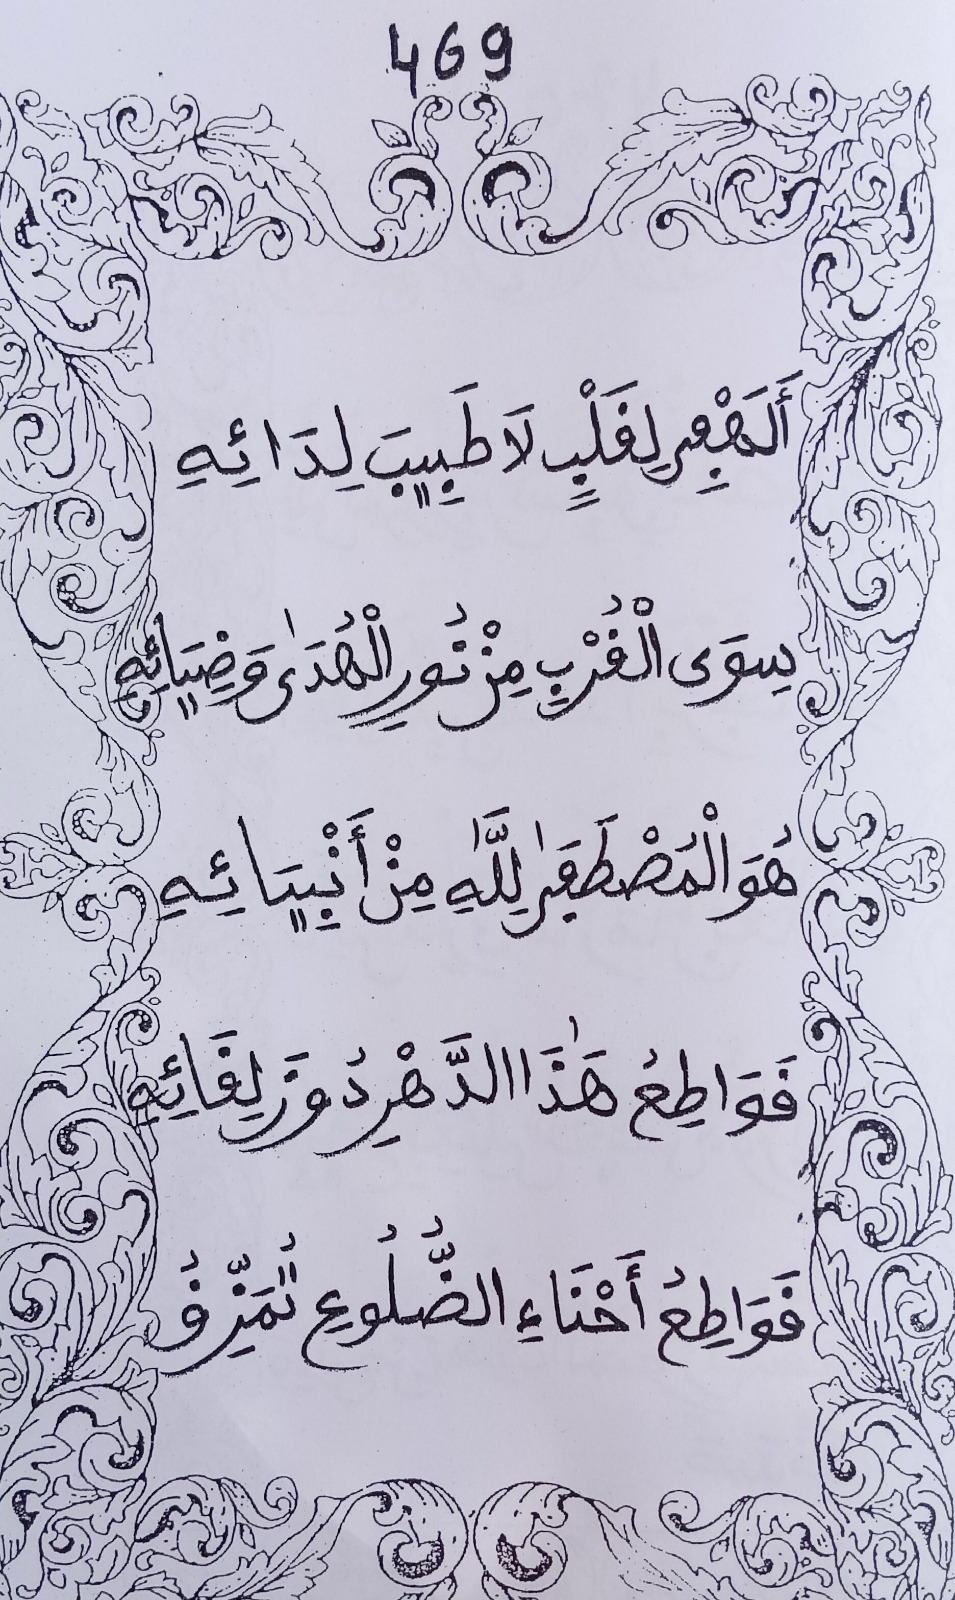 469
أَلَهْفِي لِقَلْبٍ لَا طَبِيبَ لِدَائِهِ
سِوَى الْقُرْبِ مِنْ نُورِ الْهُدَىٰ وَضِيَائِهِ
هُوَ الْمُصْطَفَىٰ لِلَّهِ مِنْ أَنْبِيَائِهِ
قَوَاطِعُ هَٰذَا الدَّهْرِ دُونَ لِقَائِهِ
قَوَاطِعُ أَحْنَاءِ الضُّلُوعِ تُمَزِّقُ